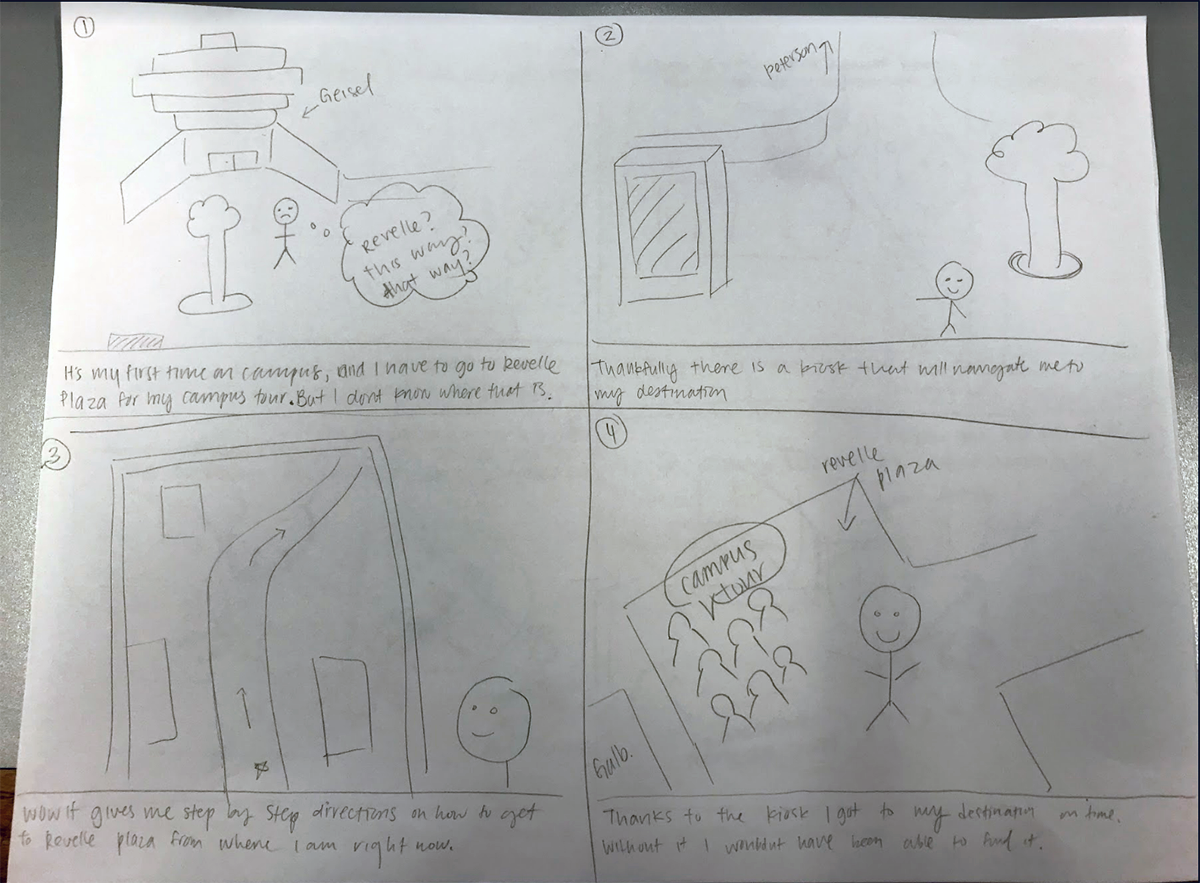 1
Geisel
Revelle?
this way?
that way?
It's my first time on campus, and I have to go to Revelle
Plaza for my campus tour. But I dont know where that is.
2
Peterson
Thankfully there is a kiosk that will navigate me to
my destination
3
wow it gives me step by step directions on how to get
to Revelle plaza from where I am right now.
4
revelle
plaza
campus
tour
Galb.
Thanks to the kiosk I got to my destination on time.
without it I wouldnt have been able to find it.